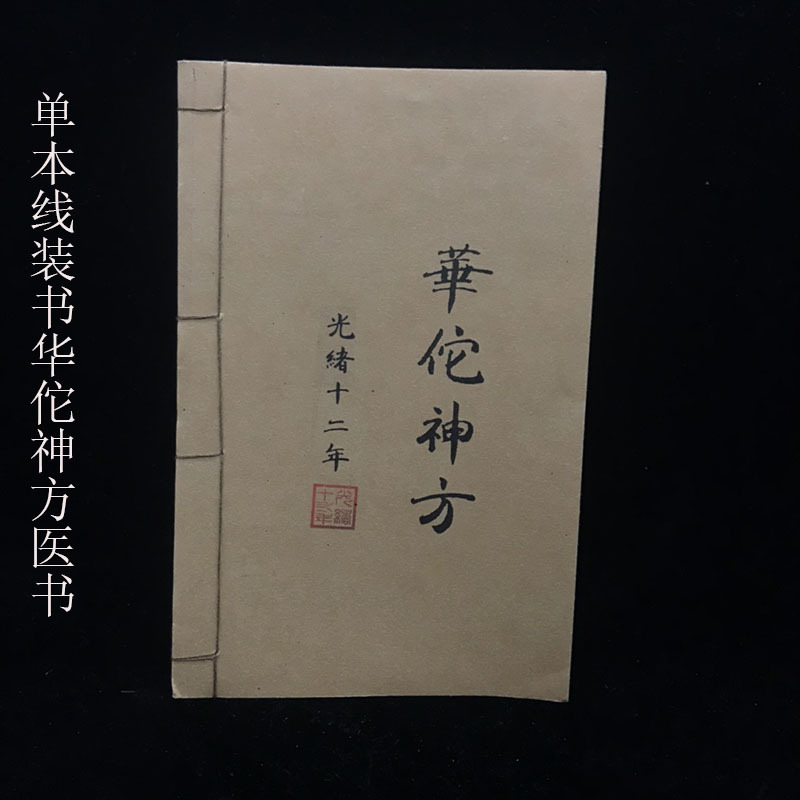 单本线装书华佗神方医书
華佗神方
光緒十二年
光緒
十二年